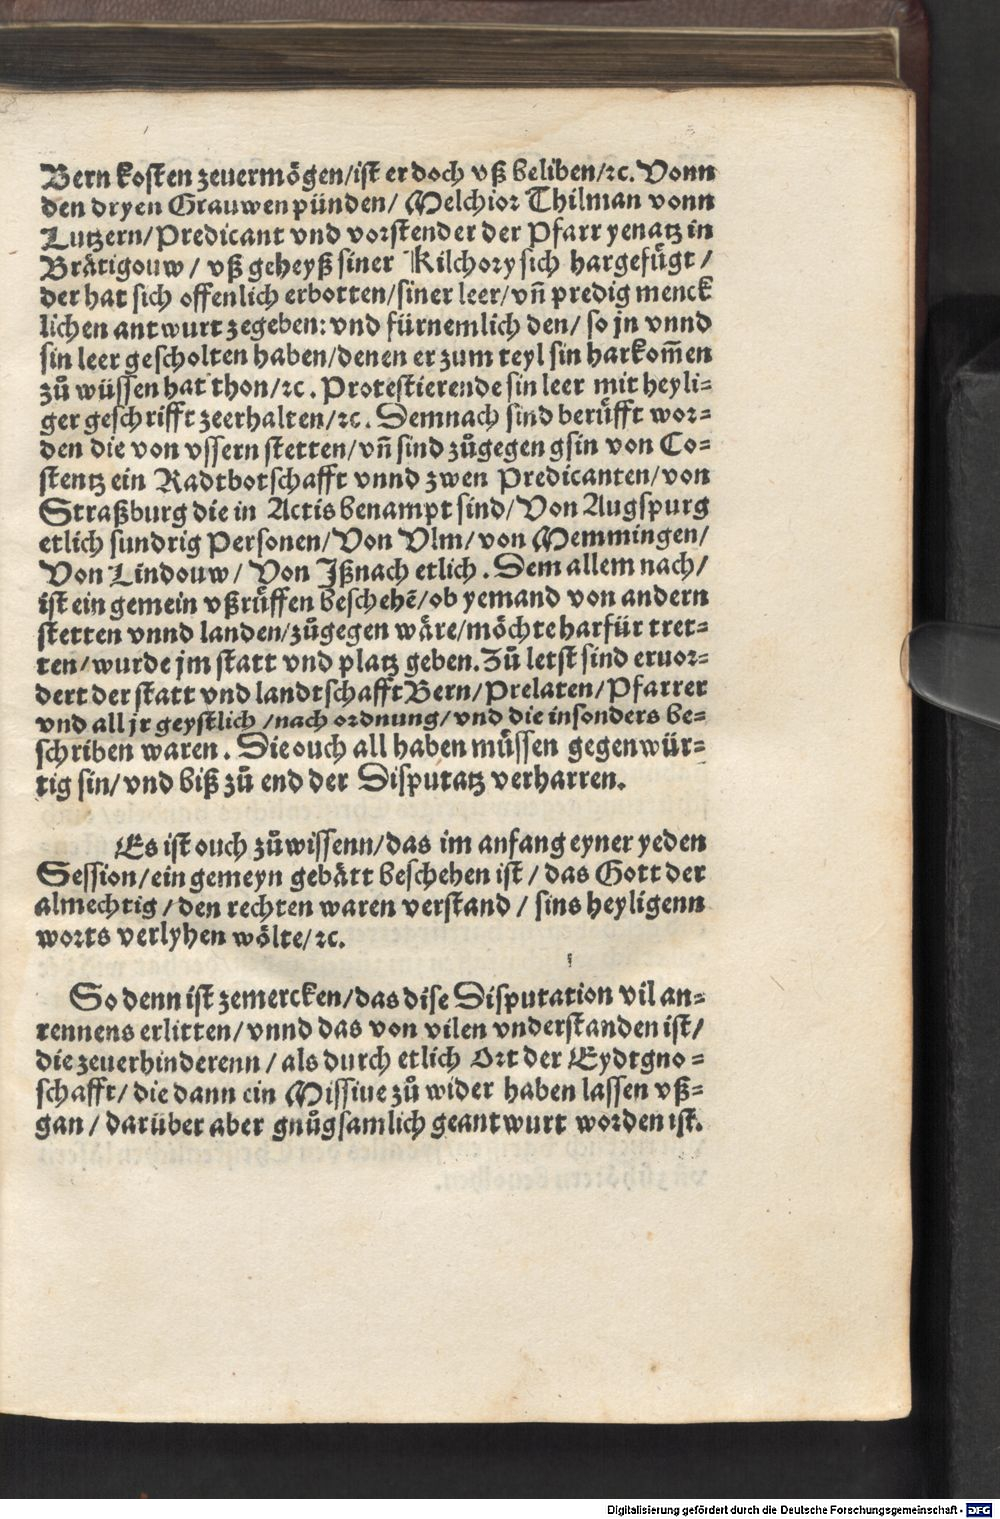 Bern kosten zeuermögen/ist er doch vß beliben/ꝛc. Vonn
den dryen Grauwen pünden/ Melchior Thilman vonn
Lutzern/Predicant vnd vorstender der Pfarr yenatz in
Brätigouw/ vß geheyß siner Kilchory sich hargefuͤgt/
der hat sich offenlich erbotten/siner leer/vñ predig menck
lichen antwurt zegeben: vnd fürnemlich den/ so jn vnnd
sin leer gescholten haben/denen er zum teyl sin harkom̃en
zuͦ wüssen hat thon/ꝛc. Protestierende sin leer mit heyli-
ger geschrifft zeerhalten/ꝛc. Demnach sind beruͤfft wor-
den die von vssern stetten/vñ sind zuͦgegen gsin von Co-
stentz ein Radtbotschafft vnnd zwen Predicanten/von
Straßburg die in Actis benampt sind/Von Augspurg
etlich sundrig Personen/Von Vlm/von Memmingen/
Von Lindouw/ Von Jßnach etlich. Dem allem nach/
ist ein gemein vßruͤffen beschehẽ/ob yemand von andern
stetten vnnd landen/zuͦgegen wäre/möchte harfür tret-
ten/wurde jm statt vnd platz geben. Zuͦ letst sind eruor-
dert der statt vnd landtschafft Bern/Prelaten/Pfarrer
vnd all jr geystlich/nach ordnung/vnd die insonders be-
schriben waren. Die ouch all haben muͤssen gegenwür-
tig sin/vnd biß zuͦ end der Disputatz verharren.

Es ist ouch zuͦ wissenn/das im anfang eyner yeden
Session/ein gemeyn gebätt beschehen ist/das Gott der
almechtig/den rechten waren verstand/sins heyligenn
worts verlyhen wölte/ꝛc.

So denn ist zemercken/das dise Disputation vil an-
rennens erlitten/vnnd das von vilen vnderstanden ist/
die zeuerhinderenn/als durch etlich Ort der Eydtgno-
schafft/die dann ein Missiue zuͦ wider haben lassen vß-
gan/darüber aber gnuͦgsamlich geantwurt worden ist.

Digitalisierung gefördert durch die Deutsche Forschungsgemeinschaft - DFG